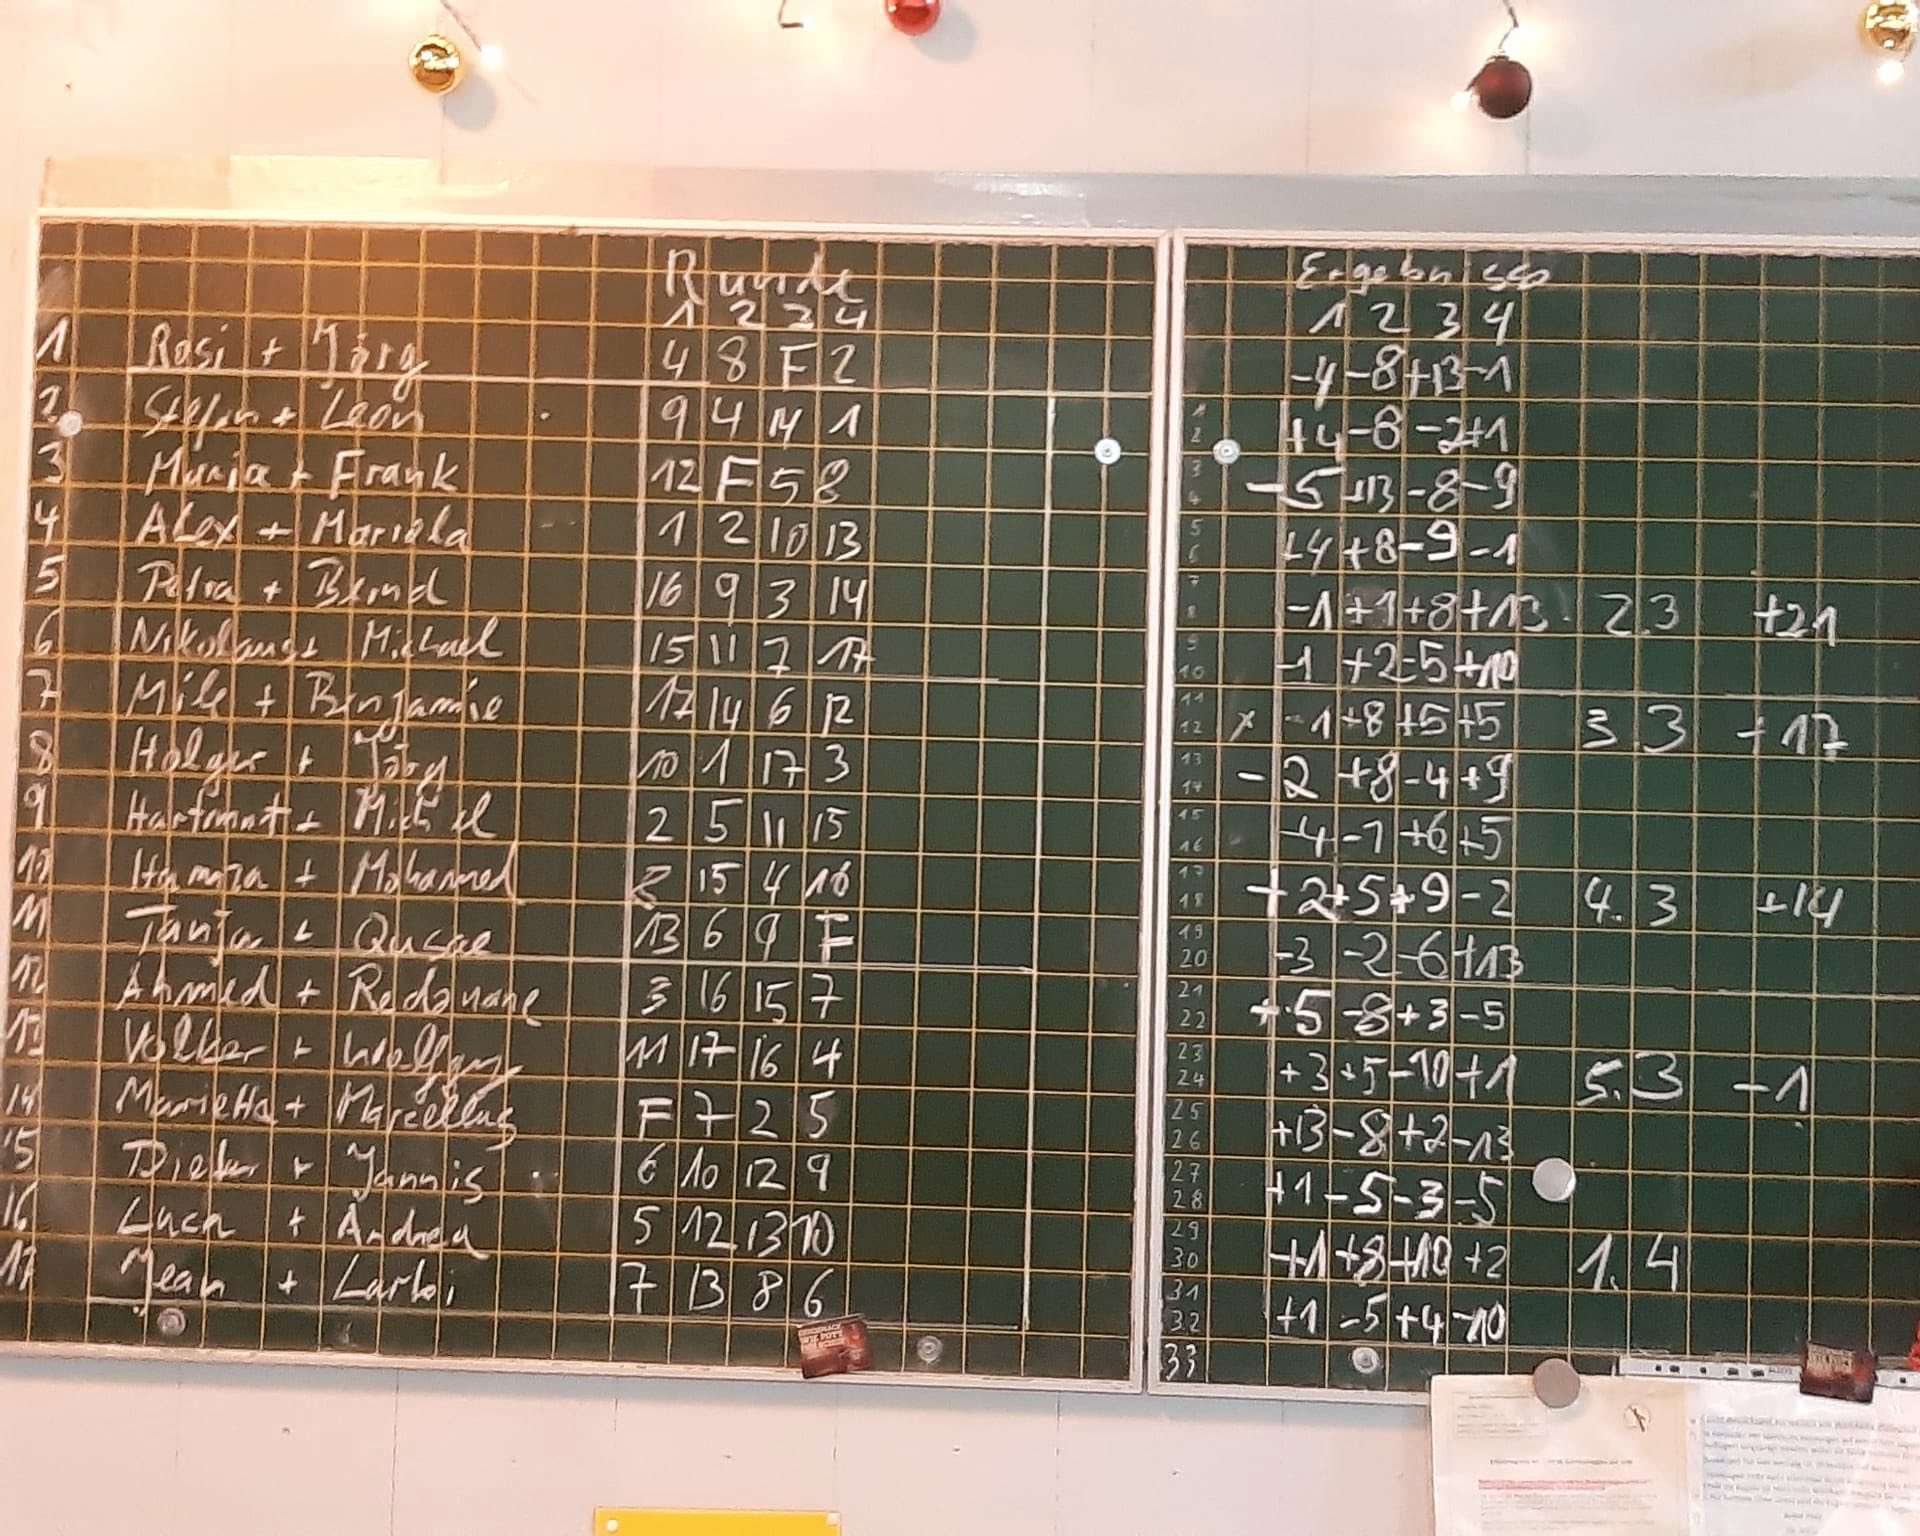 Runde
1 2 3 4
1 Rosi + Jörg 4 8 F 2
2 Stefan + Leon 9 4 14 1
3 Maria + Frank 12 F 5 8
4 Alex + Mariela 1 2 10 13
5 Petra + Bernd 16 9 3 14
6 Nikolaus + Michael 15 11 7 17
7 Mile + Benjamin 17 14 6 12
8 Holger + Jörg 10 1 17 3
9 Hartmut + Michel 2 5 11 15
10 Hamza + Mohamed 8 15 4 16
11 Tanja + Qusae 13 6 9 F
12 Ahmed + Redouane 3 16 15 7
13 Volker + Wolfgang 11 17 16 4
14 Marietta + Marcellus F 7 2 5
15 Dieter + Jannis 6 10 12 9
16 Luca + Andrea 5 12 13 10
17 Mean + Larbi 7 13 8 6
Ergebnisse
1 2 3 4
-4 -8 +13 -1
+4 -8 -2 +1
-5 +13 -8 -9
+4 +8 -9 -1
-1 +1 +8 +13 2. 3 +21
-1 +2 -5 +10
x -1 +8 +5 +5 3. 3 +17
-2 +8 -4 +9
-4 -1 +6 +5
+2 +5 +9 -2 4. 3 +14
-3 -2 -6 +13
+5 -8 +3 -5
+3 +5 -10 +1 5. 3 -1
+13 -8 +2 -13
+1 -5 -3 -5
+1 +8 +10 +2 1. 4
+1 -5 +4 -10
1
2
3
4
5
6
7
8
9
10
11
12
13
14
15
16
17
18
19
20
21
22
23
24
25
26
27
28
29
30
31
32
33